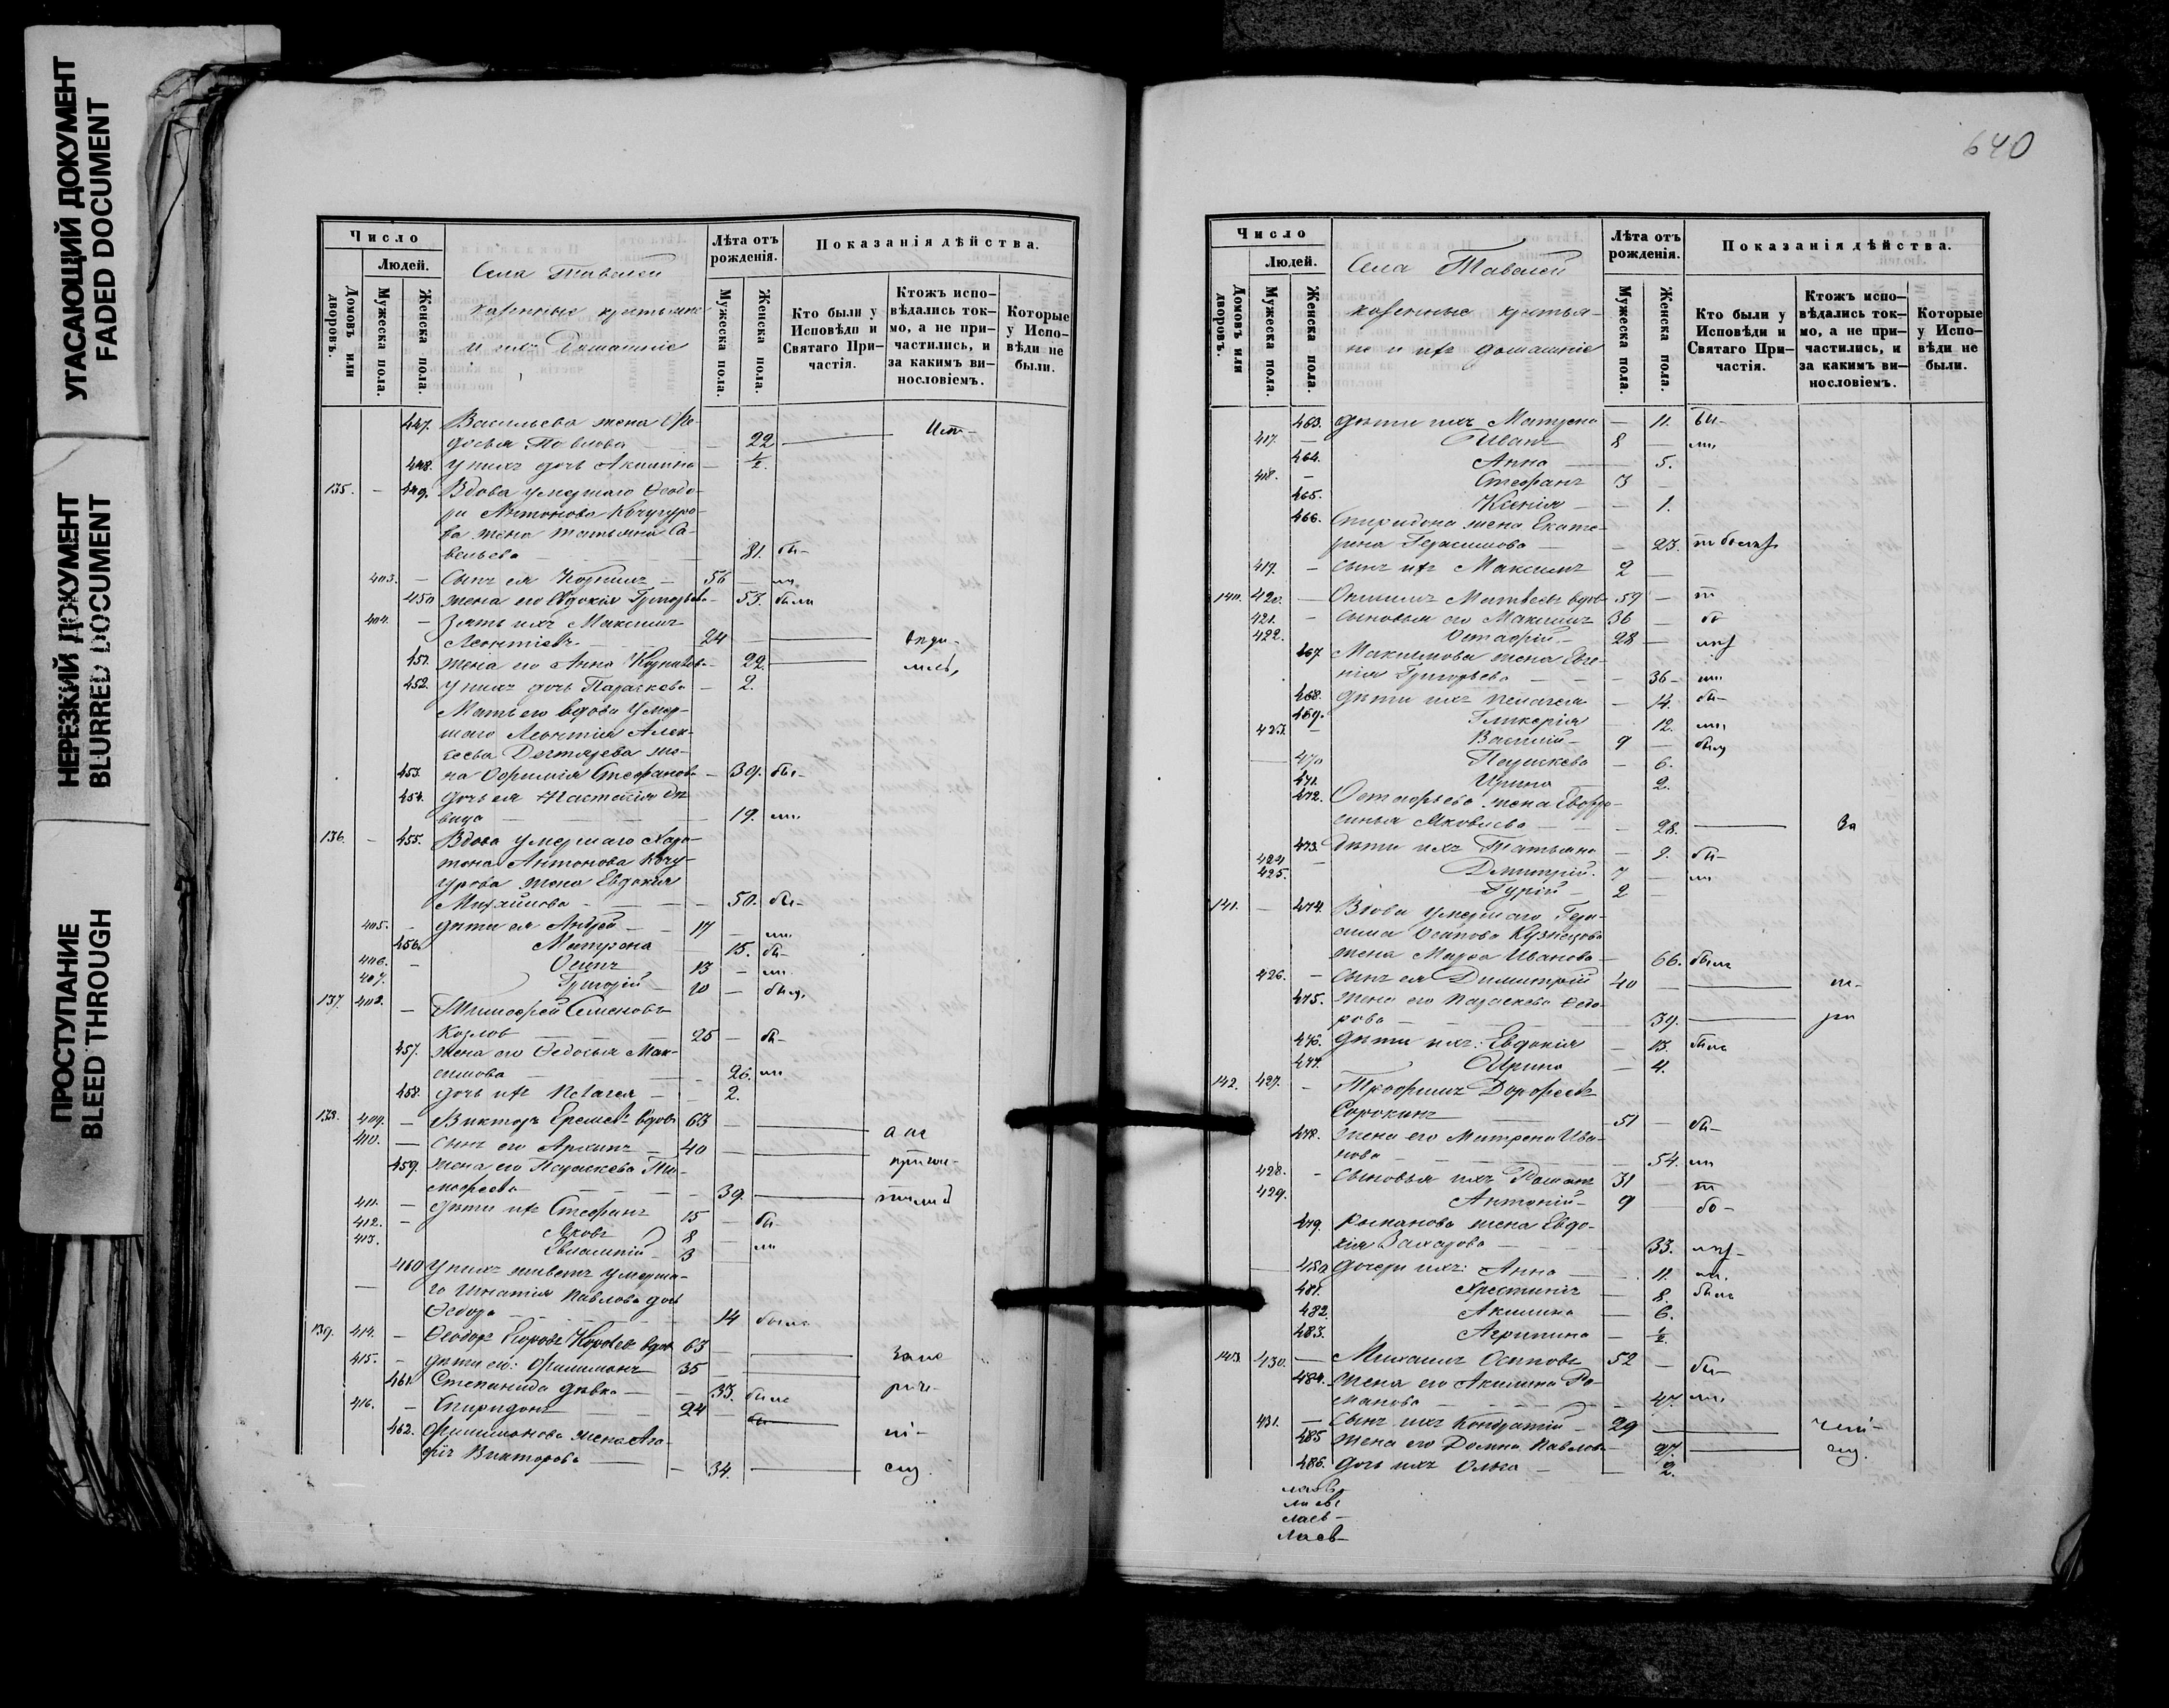 УГАСАЮЩИЙ ДОКУМЕНТ
FADED DOCUMENT
НЕРЕЗКИЙ ДОКУМЕНТ
BLURRED DOCUMENT
ПРОСТУПАНИЕ
BLEED THROUGH
Число
Людей.
Домовъ или дворовъ.
Мужеска пола.
Женска пола.
Села
казенные крестьяне
и ихъ домашніе
Лѣта отъ рожденія.
Мужеска пола.
Женска пола.
Показанія дѣйства.
Кто были у Исповѣди и Святаго Причастія.
Ктожъ исповѣдались токмо, а не причастились, и за какимъ винословіемъ.
Которые у Исповѣди не были.
447. Васильева жена Ѳео-
досья Павлова — 22
448. у нихъ дочь Акилина — ½.
135. — 449. Вдова умершаго Ѳеодо-
ра Антонова Кочугуро-
ва жена Татьяна Са-
вельева — 81. бы-
403. — Сынъ ея Корнилъ — 56 — ли
450 жена его Евдокія Григорьева — 53. были
404. — Зять ихъ Максимъ
Леонтіевъ 24 —
451. жена его Анна Корнилова — 22.
452. у нихъ дочь Параскева — 2.
Мать его вдова умер-
шаго Леонтія Алек-
сеева Дегтярева же-
453. на Евфимія Стефанова — 39. бы-
454. дочь ея Настасія
вица — 19. ли
136. — 455. Вдова умершаго Хари-
тона Антонова Кочу-
гурова жена Евдокия
Михайлова — 50. бы-
405. — дѣти ея Андрей — 17 — ли
456. Матрона — 15. бы-
406. — Осипъ 13 — ли
407. Григорій — 10 — были
137. 408. — Тимофей Семеновъ
Козлов 25 — бы-
457. жена его Ѳедосья Мак-
симова — 26. ли
458. дочь ихъ Пелагея — 2.
138. 409. — Викторъ Еремеевъ вдовъ 63 —
410. — сынъ его Архипъ — 40 —
459. жена его Параскева Ти-
мофеева — 39.
411. — дѣти ихъ Стефанъ 15 — бы-
412. — Яковъ 8 — ли
413. Евлампій — 3
460 у нихъ живетъ умерша-
го Игнатія Павлова дочь
Ѳедора — 14 была
139. 414. — Ѳеодоръ Егоровъ Королев вдов 63 —
415. — дѣти его: Филимонъ 35 —
461. Степанида дѣвка — 33. была
416. — Спиридонъ 24 —
462. Филимонова жена Ага-
фія Викторова — 34.
640
Число
Людей.
Домовъ или дворовъ.
Мужеска пола.
Женска пола.
Села
казенные крестья-
не и ихъ домашніе
Лѣта отъ рожденія.
Мужеска пола.
Женска пола.
Показанія дѣйства.
Кто были у Исповѣди и Святаго Причастія.
Ктожъ исповѣдались токмо, а не причастились, и за какимъ винословіемъ.
Которые у Исповѣди не были.
463. дѣти ихъ Матрена — 11. бы-
417. — Иванъ 8 — ли
464. Анна — 5.
418. — Стефанъ 3 —
465. Ксенія — 1.
466. Спиридона жена Екате-
рина Герасимова — 23.
419. — сынъ ихъ Максимъ 2 —
140. 420. — Матвеевъ вдовъ 59 —
421. — сыновья его Максимъ 36 —
422. Остафій — 28 —
467 Максимова жена Евге-
нія Григорьева — 36 —
468. дѣти ихъ Пелагея — 14. бы-
469. Гликерія — 12. ли
423. — Василій — 9 — были
470 Параскева — 6.
471. Ирина — 2.
472. Остафьева жена Евфро-
синья Яковлева — 28. За
473. Дѣти ихъ Татьяна — 9. бы-
424 — Дмитрій 7 — ли
425. Гурій — 2
141. — 474. Вдова умершаго Гера-
сима Осипова Кузнецова
жена Марѳа Иванова — 66. была
426. — сынъ ея Димитрій 40 —
475. жена его Параскева Ѳедо-
рова — 39.
476. дѣти ихъ: Евдокія — 13. была
477. Ирина — 4.
142. 427. — Трофимъ Дорофеевъ
Сорокинъ 51 — бы-
478. жена его Матрена Ива-
нова — 54. ли
428. — сыновья ихъ Романъ 31 —
429. Антоній — 9
479. Романова жена Евдо-
кія Захарова — 33.
480 дочери ихъ: Анна — 11.
481. Христинія — 8. была
482. Акилина — 6.
483. Агрипина — ½
143. 430. — Михаилъ Осиповъ 52 — бы-
484. жена его Акилина Ро-
манова — 47 ли
431. — сынъ ихъ Кондратій — 29 —
485 жена его Домна Павлова — 27.
486. дочь ихъ Ольга — 2.